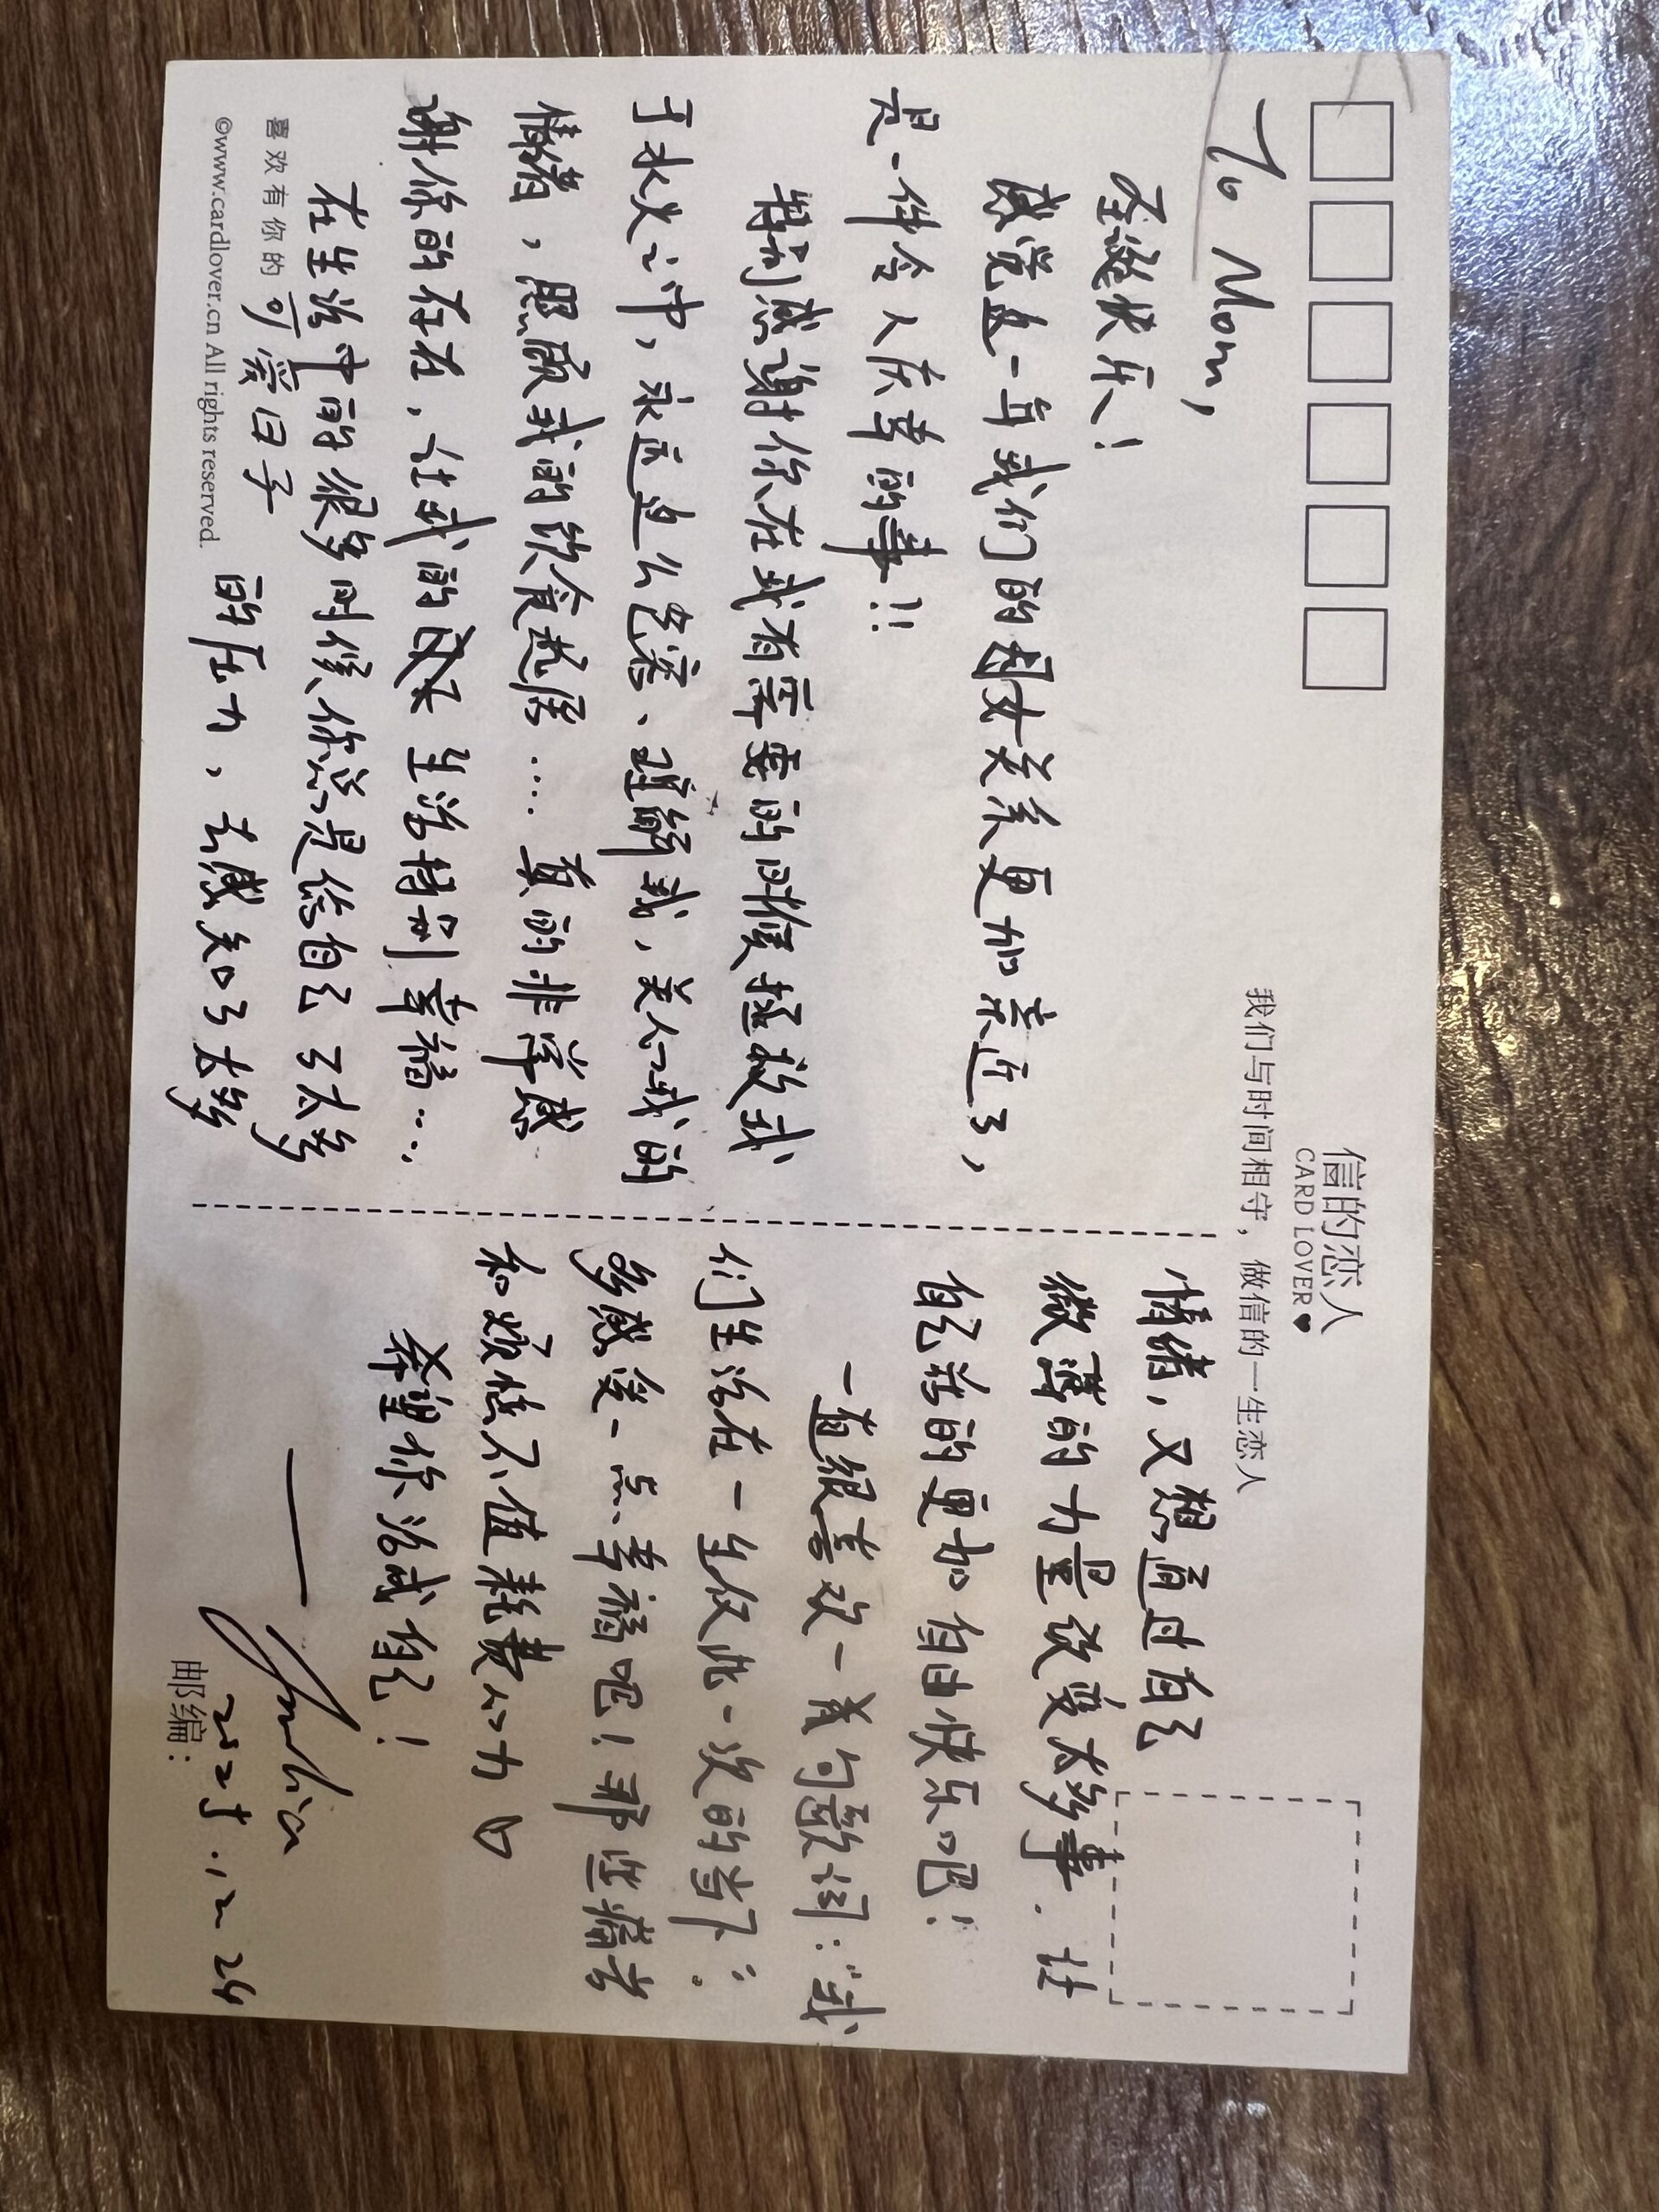 信的恋人
CARD LOVER♥
我们与时间相守，做信的一生恋人
To Mom,
圣诞快乐！
感觉这一年我们的母女关系更加亲近了，
是一件令人庆幸的事!!
特别感谢你在我有需要的时候拯救我
于水火之中，永远这么包容、理解我，关心我的
情绪，照顾我的饮食起居…真的非常感
谢你的存在，让我的生活特别幸福…
在生活中的很多时候你总是给自己了太多
的压力，去感知了太多
喜欢有你的可爱日子
©www.cardlover.cn All rights reserved.
情绪，又想通过自己
微薄的力量改变太多事. 让
自己活的更加自由快乐吧！
一直很喜欢一成句歌词：“我
们生活在一生仅此一次的当下”。
多感受一点幸福吧！那些痛苦
和烦恼不值耗费心力♡
希望你治愈自己！
——Julia
2025.12.24
邮编：